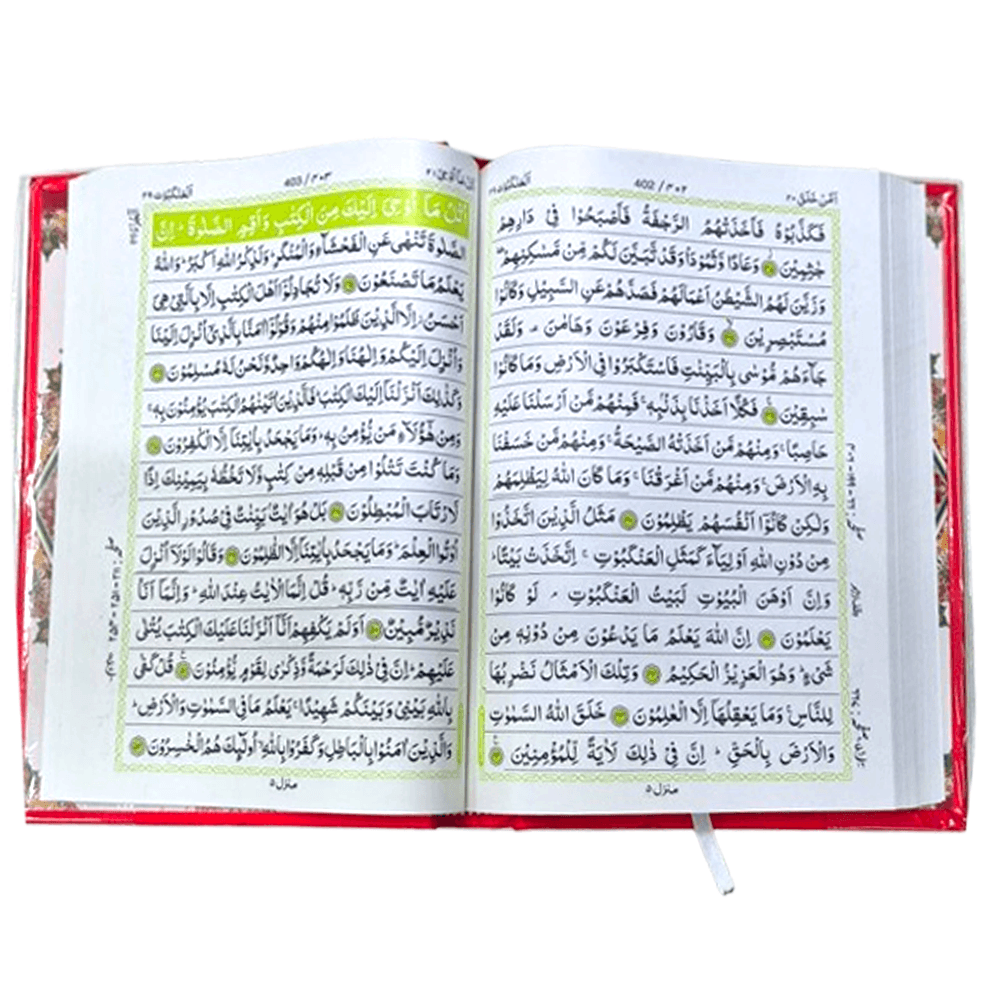 اَمَّنْ خَلَقَ ٢٠
402 / ٤٠٢
اَلْعَنْكَبُوْت ٢٩
فَكَذَّبُوْهُ فَاَخَذَتْهُمُ الرَّجْفَةُ فَاَصْبَحُوْا فِيْ دَارِهِمْ
جٰثِمِيْنَ ۟ وَعَادًا وَّثَمُوْدَا۟ وَقَدْ تَّبَيَّنَ لَكُمْ مِّنْ مَّسٰكِنِهِمْ
وَزَيَّنَ لَهُمُ الشَّيْطٰنُ اَعْمَالَهُمْ فَصَدَّهُمْ عَنِ السَّبِيْلِ وَكَانُوْا
مُسْتَبْصِرِيْنَ ۟ وَقَارُوْنَ وَفِرْعَوْنَ وَهَامٰنَ ۚ وَلَقَدْ
جَآءَهُمْ مُّوْسٰى بِالْبَيِّنٰتِ فَاسْتَكْبَرُوْا فِي الْاَرْضِ وَمَا كَانُوْا
سٰبِقِيْنَ ۟ فَكُلًّا اَخَذْنَا بِذَنْۢبِهٖ ۚ فَمِنْهُمْ مَّنْ اَرْسَلْنَا عَلَيْهِ
حَاصِبًا ۚ وَمِنْهُمْ مَّنْ اَخَذَتْهُ الصَّيْحَةُ ۚ وَمِنْهُمْ مَّنْ خَسَفْنَا
بِهِ الْاَرْضَ ۚ وَمِنْهُمْ مَّنْ اَغْرَقْنَا ۚ وَمَا كَانَ اللّٰهُ لِيَظْلِمَهُمْ
وَلٰكِنْ كَانُوْۤا اَنْفُسَهُمْ يَظْلِمُوْنَ ۟ مَثَلُ الَّذِيْنَ اتَّخَذُوْا
مِنْ دُوْنِ اللّٰهِ اَوْلِيَآءَ كَمَثَلِ الْعَنْكَبُوْتِ ۚ اِتَّخَذَتْ بَيْتًا ؕ
وَاِنَّ اَوْهَنَ الْبُيُوْتِ لَبَيْتُ الْعَنْكَبُوْتِ ۘ لَوْ كَانُوْا
يَعْلَمُوْنَ ۟ اِنَّ اللّٰهَ يَعْلَمُ مَا يَدْعُوْنَ مِنْ دُوْنِهٖ مِنْ
شَيْءٍ ؕ وَهُوَ الْعَزِيْزُ الْحَكِيْمُ ۟ وَتِلْكَ الْاَمْثَالُ نَضْرِبُهَا
لِلنَّاسِ ۚ وَمَا يَعْقِلُهَاۤ اِلَّا الْعٰلِمُوْنَ ۟ خَلَقَ اللّٰهُ السَّمٰوٰتِ
وَالْاَرْضَ بِالْحَقِّ ؕ اِنَّ فِيْ ذٰلِكَ لَاٰيَةً لِّلْمُؤْمِنِيْنَ ۟
منزل ٥
403 / ٤٠٣
اَلْعَنْكَبُوْت ٢٩
اُتْلُ مَاۤ اُوْحِيَ اِلَيْكَ مِنَ الْكِتٰبِ وَاَقِمِ الصَّلٰوةَ ؕ اِنَّ
الصَّلٰوةَ تَنْهٰى عَنِ الْفَحْشَآءِ وَالْمُنْكَرِ ؕ وَلَذِكْرُ اللّٰهِ اَكْبَرُ ؕ وَاللّٰهُ
يَعْلَمُ مَا تَصْنَعُوْنَ ۟ وَلَا تُجَادِلُوْۤا اَهْلَ الْكِتٰبِ اِلَّا بِالَّتِيْ هِيَ
اَحْسَنُ ۖ اِلَّا الَّذِيْنَ ظَلَمُوْا مِنْهُمْ وَقُوْلُوْۤا اٰمَنَّا بِالَّذِيْۤ اُنْزِلَ اِلَيْنَا
وَاُنْزِلَ اِلَيْكُمْ وَاِلٰهُنَا وَاِلٰهُكُمْ وَاحِدٌ وَّنَحْنُ لَهٗ مُسْلِمُوْنَ ۟
وَكَذٰلِكَ اَنْزَلْنَاۤ اِلَيْكَ الْكِتٰبَ ؕ فَالَّذِيْنَ اٰتَيْنٰهُمُ الْكِتٰبَ يُؤْمِنُوْنَ بِهٖ ۚ
وَمِنْ هٰۤؤُلَآءِ مَنْ يُّؤْمِنُ بِهٖ ؕ وَمَا يَجْحَدُ بِاٰيٰتِنَاۤ اِلَّا الْكٰفِرُوْنَ ۟
وَمَا كُنْتَ تَتْلُوْا مِنْ قَبْلِهٖ مِنْ كِتٰبٍ وَّلَا تَخُطُّهٗ بِيَمِيْنِكَ اِذًا
لَّارْتَابَ الْمُبْطِلُوْنَ ۟ بَلْ هُوَ اٰيٰتٌۢ بَيِّنٰتٌ فِيْ صُدُوْرِ الَّذِيْنَ
اُوْتُوا الْعِلْمَ ؕ وَمَا يَجْحَدُ بِاٰيٰتِنَاۤ اِلَّا الظّٰلِمُوْنَ ۟ وَقَالُوْا لَوْلَاۤ اُنْزِلَ
عَلَيْهِ اٰيٰتٌ مِّنْ رَّبِّهٖ ؕ قُلْ اِنَّمَا الْاٰيٰتُ عِنْدَ اللّٰهِ ؕ وَاِنَّمَاۤ اَنَا
نَذِيْرٌ مُّبِيْنٌ ۟ اَوَلَمْ يَكْفِهِمْ اَنَّاۤ اَنْزَلْنَا عَلَيْكَ الْكِتٰبَ يُتْلٰى
عَلَيْهِمْ ؕ اِنَّ فِيْ ذٰلِكَ لَرَحْمَةً وَّذِكْرٰى لِقَوْمٍ يُّؤْمِنُوْنَ ۟ قُلْ كَفٰى
بِاللّٰهِ بَيْنِيْ وَبَيْنَكُمْ شَهِيْدًا ۚ يَعْلَمُ مَا فِي السَّمٰوٰتِ وَالْاَرْضِ ؕ
وَالَّذِيْنَ اٰمَنُوْا بِالْبَاطِلِ وَكَفَرُوْا بِاللّٰهِ ۙ اُولٰٓئِكَ هُمُ الْخٰسِرُوْنَ ۟
منزل ٥